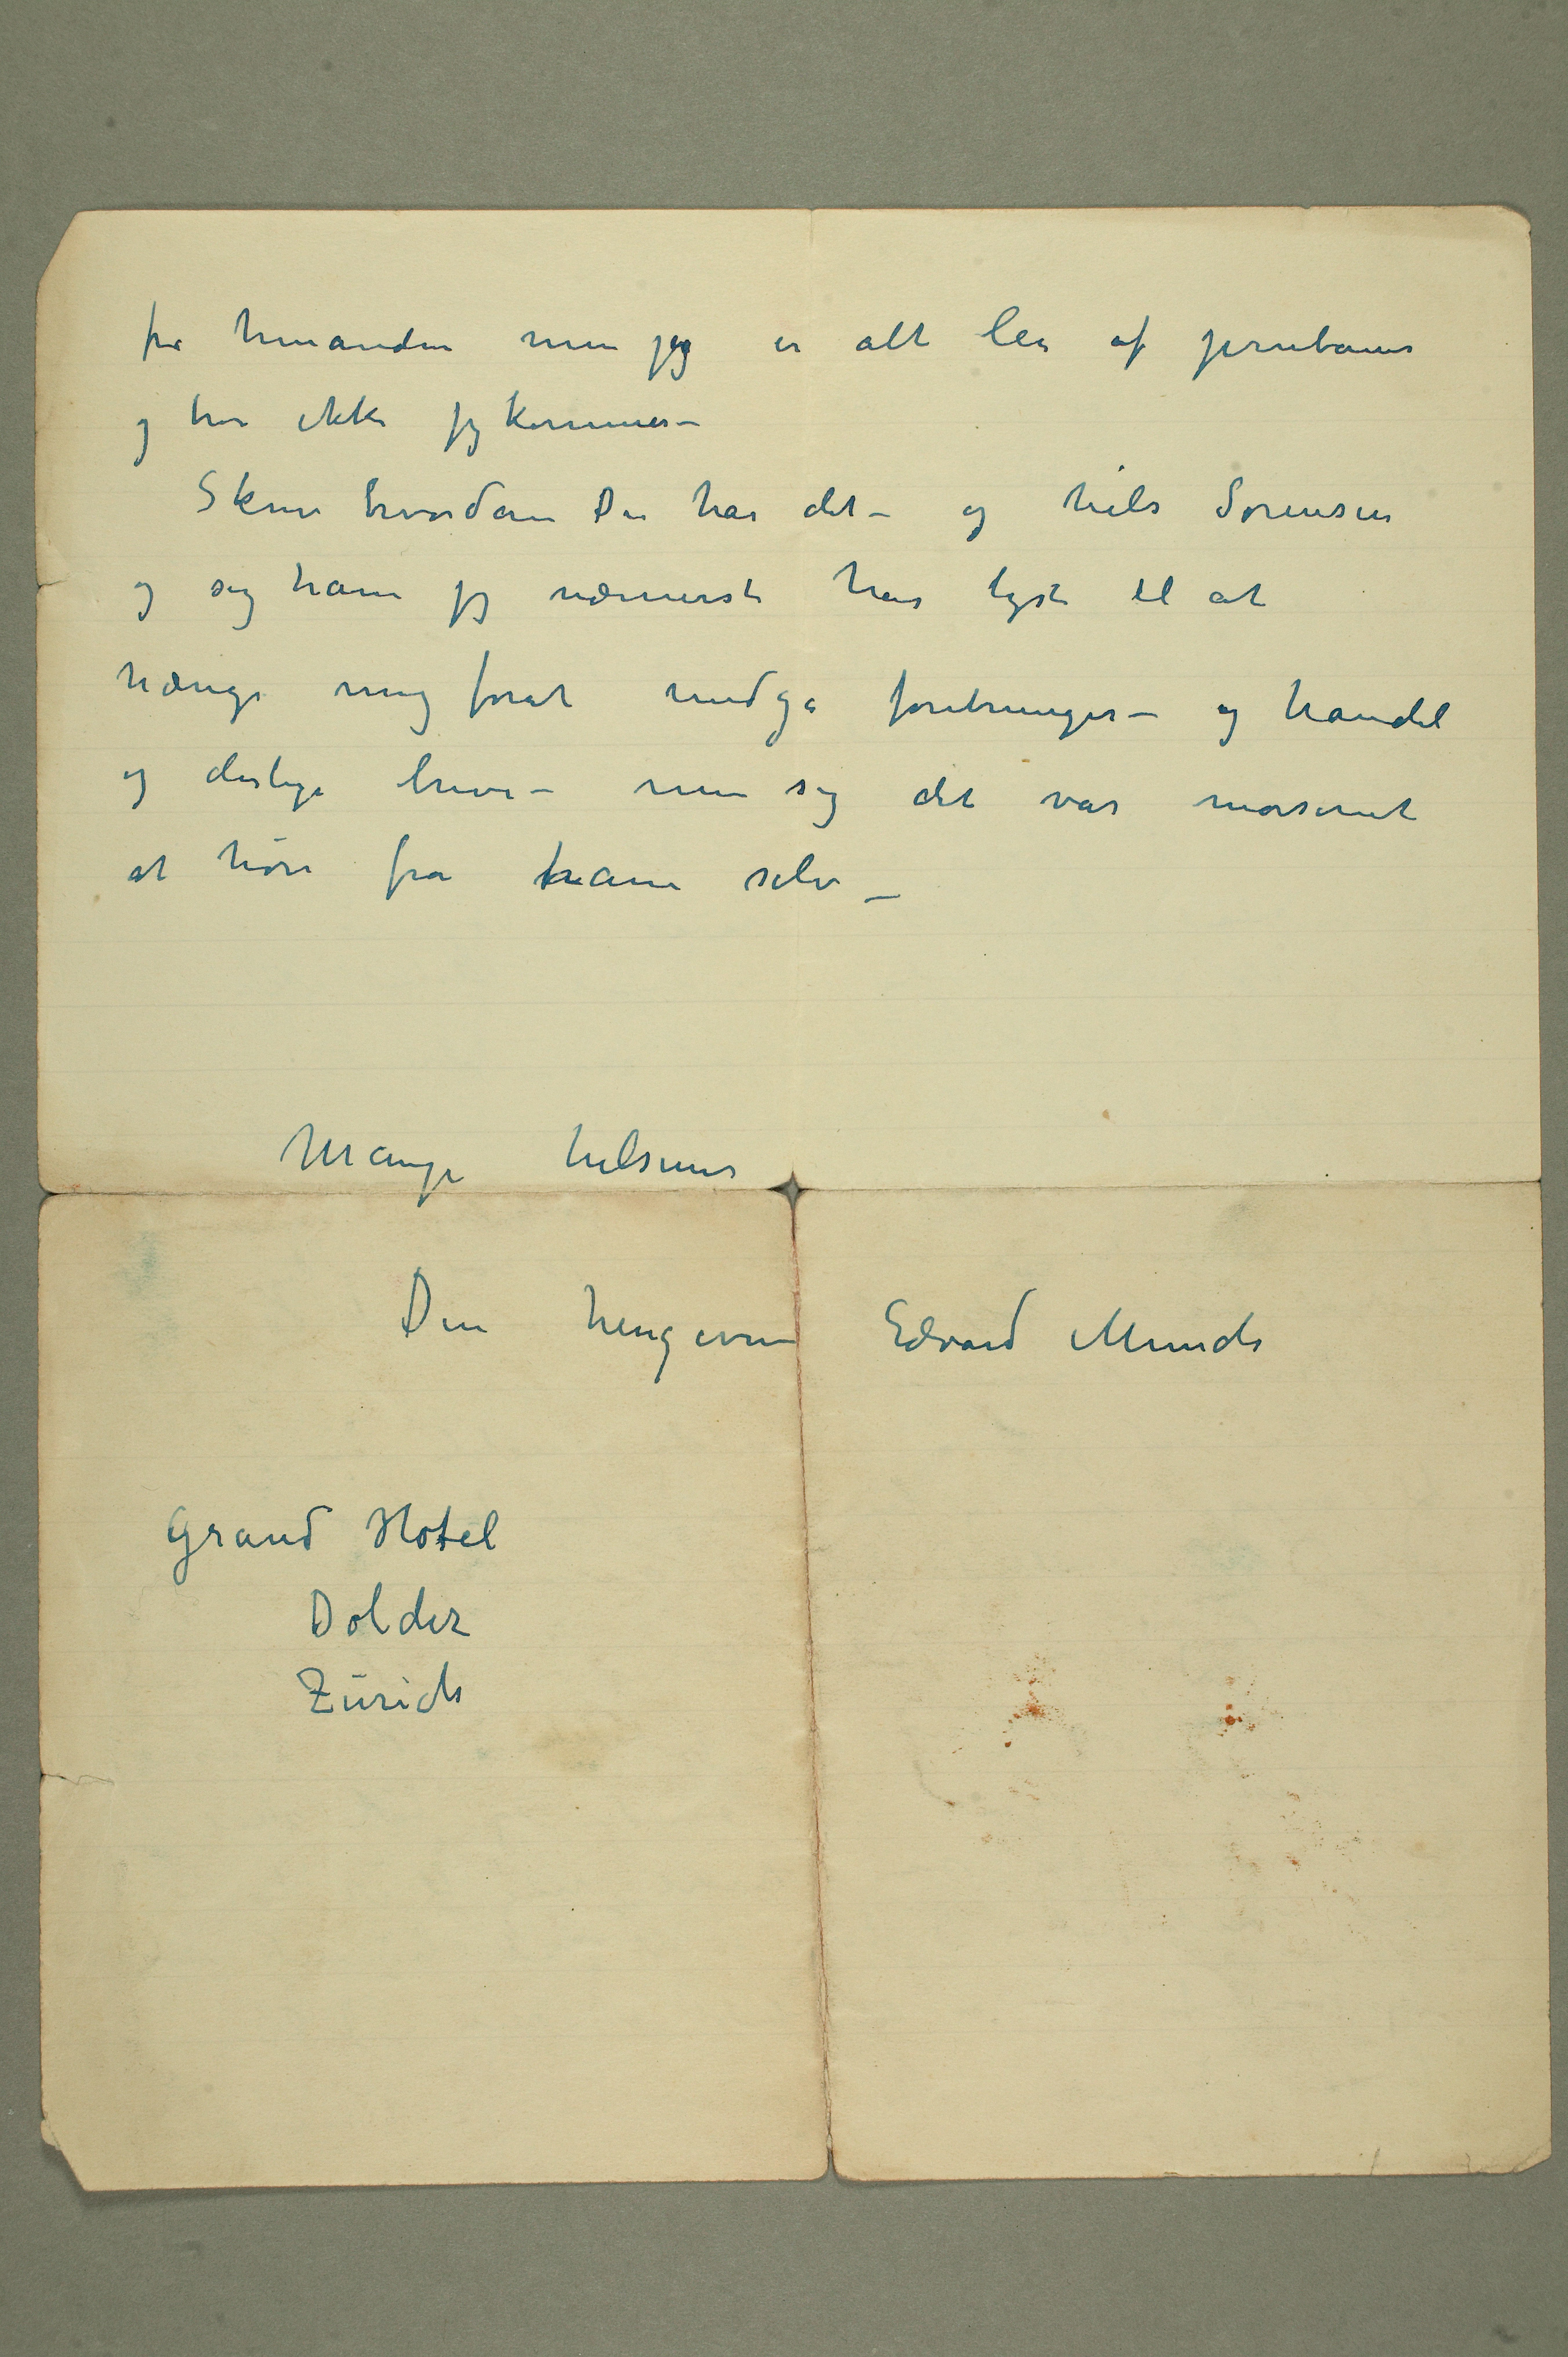 fra hinanden men jeg er alt lei af jernbaner
og tror ikke jeg kommer –
Skriv hvordan Du har det – og hils Sørensen
og sig ham jeg nærmest har lyst til at
hænge mig foråt undgå foretninger – og handel
og deslige breve – men sig det var morsomt
at høre fra ham selv –
Mange hilsener
Din hengivne Edvard Munch
Grand Hotel
Dolder
Zürich